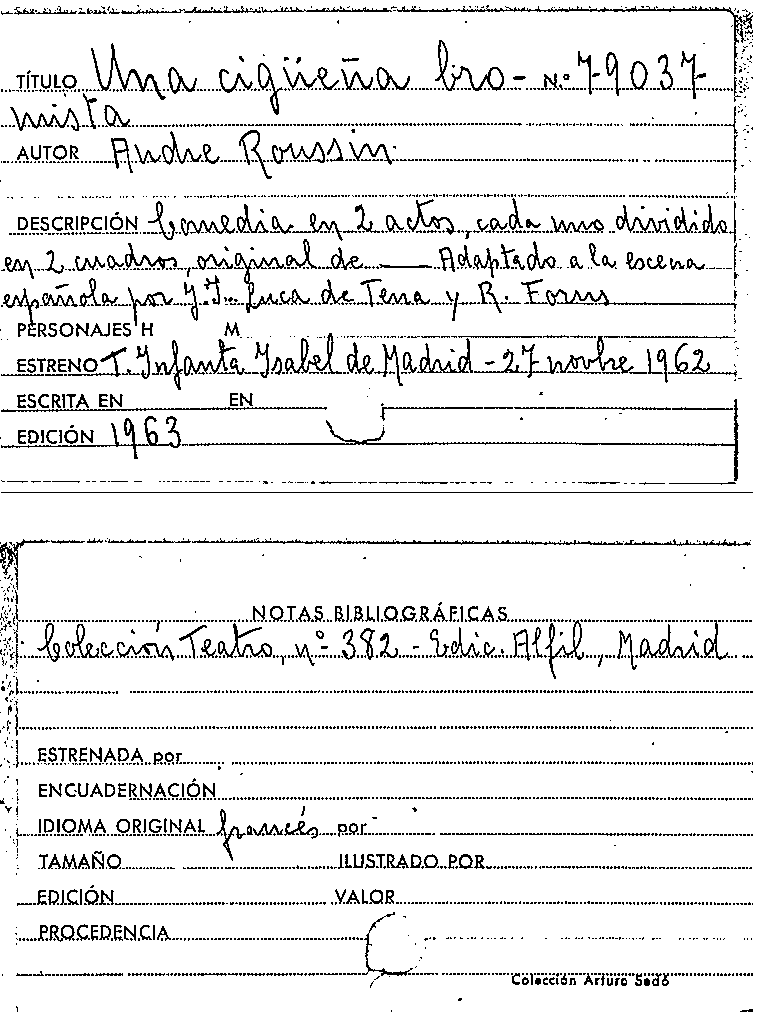 TÍTULO Una cigüeña bro- N.º 79037
mista
AUTOR Andre Roussin
DESCRIPCIÓN Comedia en 2 actos, cada uno dividido
en 2 cuadros, original de —— Adaptado a la escena
española por J.I. Luca de Tena y R. Forns
PERSONAJES H M
ESTRENO T. Infanta Isabel de Madrid - 27 novbre 1962
ESCRITA EN EN
EDICIÓN 1963
NOTAS BIBLIOGRÁFICAS
Colección Teatro, nº 382 - Edic. Alfil, Madrid
ESTRENADA por
ENCUADERNACIÓN
IDIOMA ORIGINAL francés por
TAMAÑO ILUSTRADO POR
EDICIÓN VALOR
PROCEDENCIA
Colección Arturo Sedó